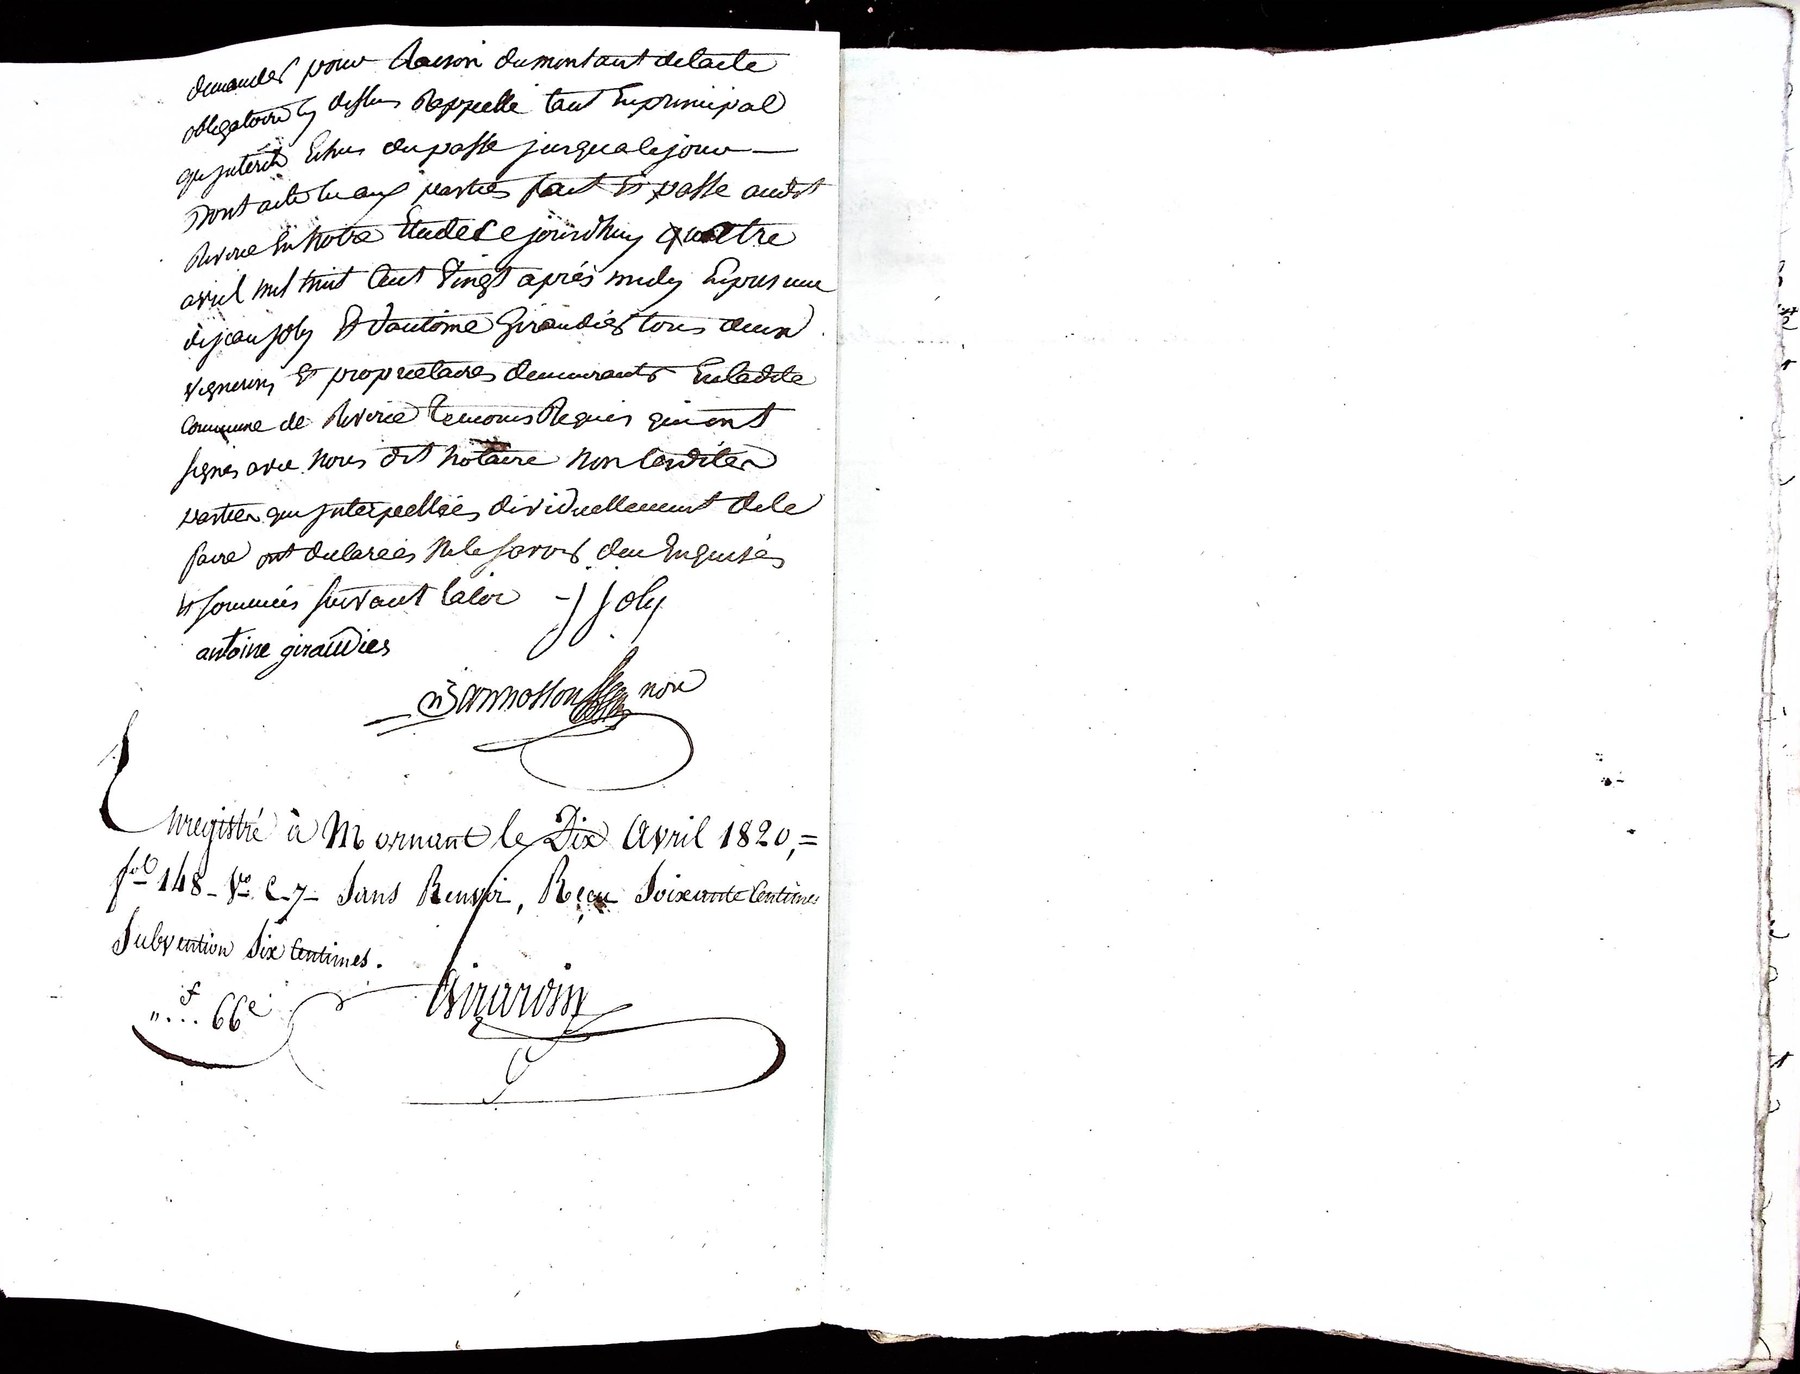 demander pour Raison du montant de lacte
obligatoire cy dessus Rappellé tant En principal
qu jnterêts Echus du passé jusqua ce jour —
Dont acte lu aux parties fait Et passé audit
Riverie En notre Etude Ce jourdhuy quatre
avril mil huit Cent Vingt après midy En presence
de jean joly Et d'antoine Giraudier tous deux
vignerons Et proprietaires demeurants En ladite
Commune de Riverie temoins Requis qui ont
signés avec nous dit notaire non lesdites
parties qui jnterpellées dividuellement de le
faire ont declarées ne le savoir de ce Enquises
Et sommées suivant la loi — j joly
antoine giraudier
nore
Enregistré à Mornant le Dix Avril 1820, =
fo 148 - Vo C. 7 - Sans Renvoi, Reçu Soixante Centimes
Subvention Six Centimes.
f
" ... 66 c
Girardin